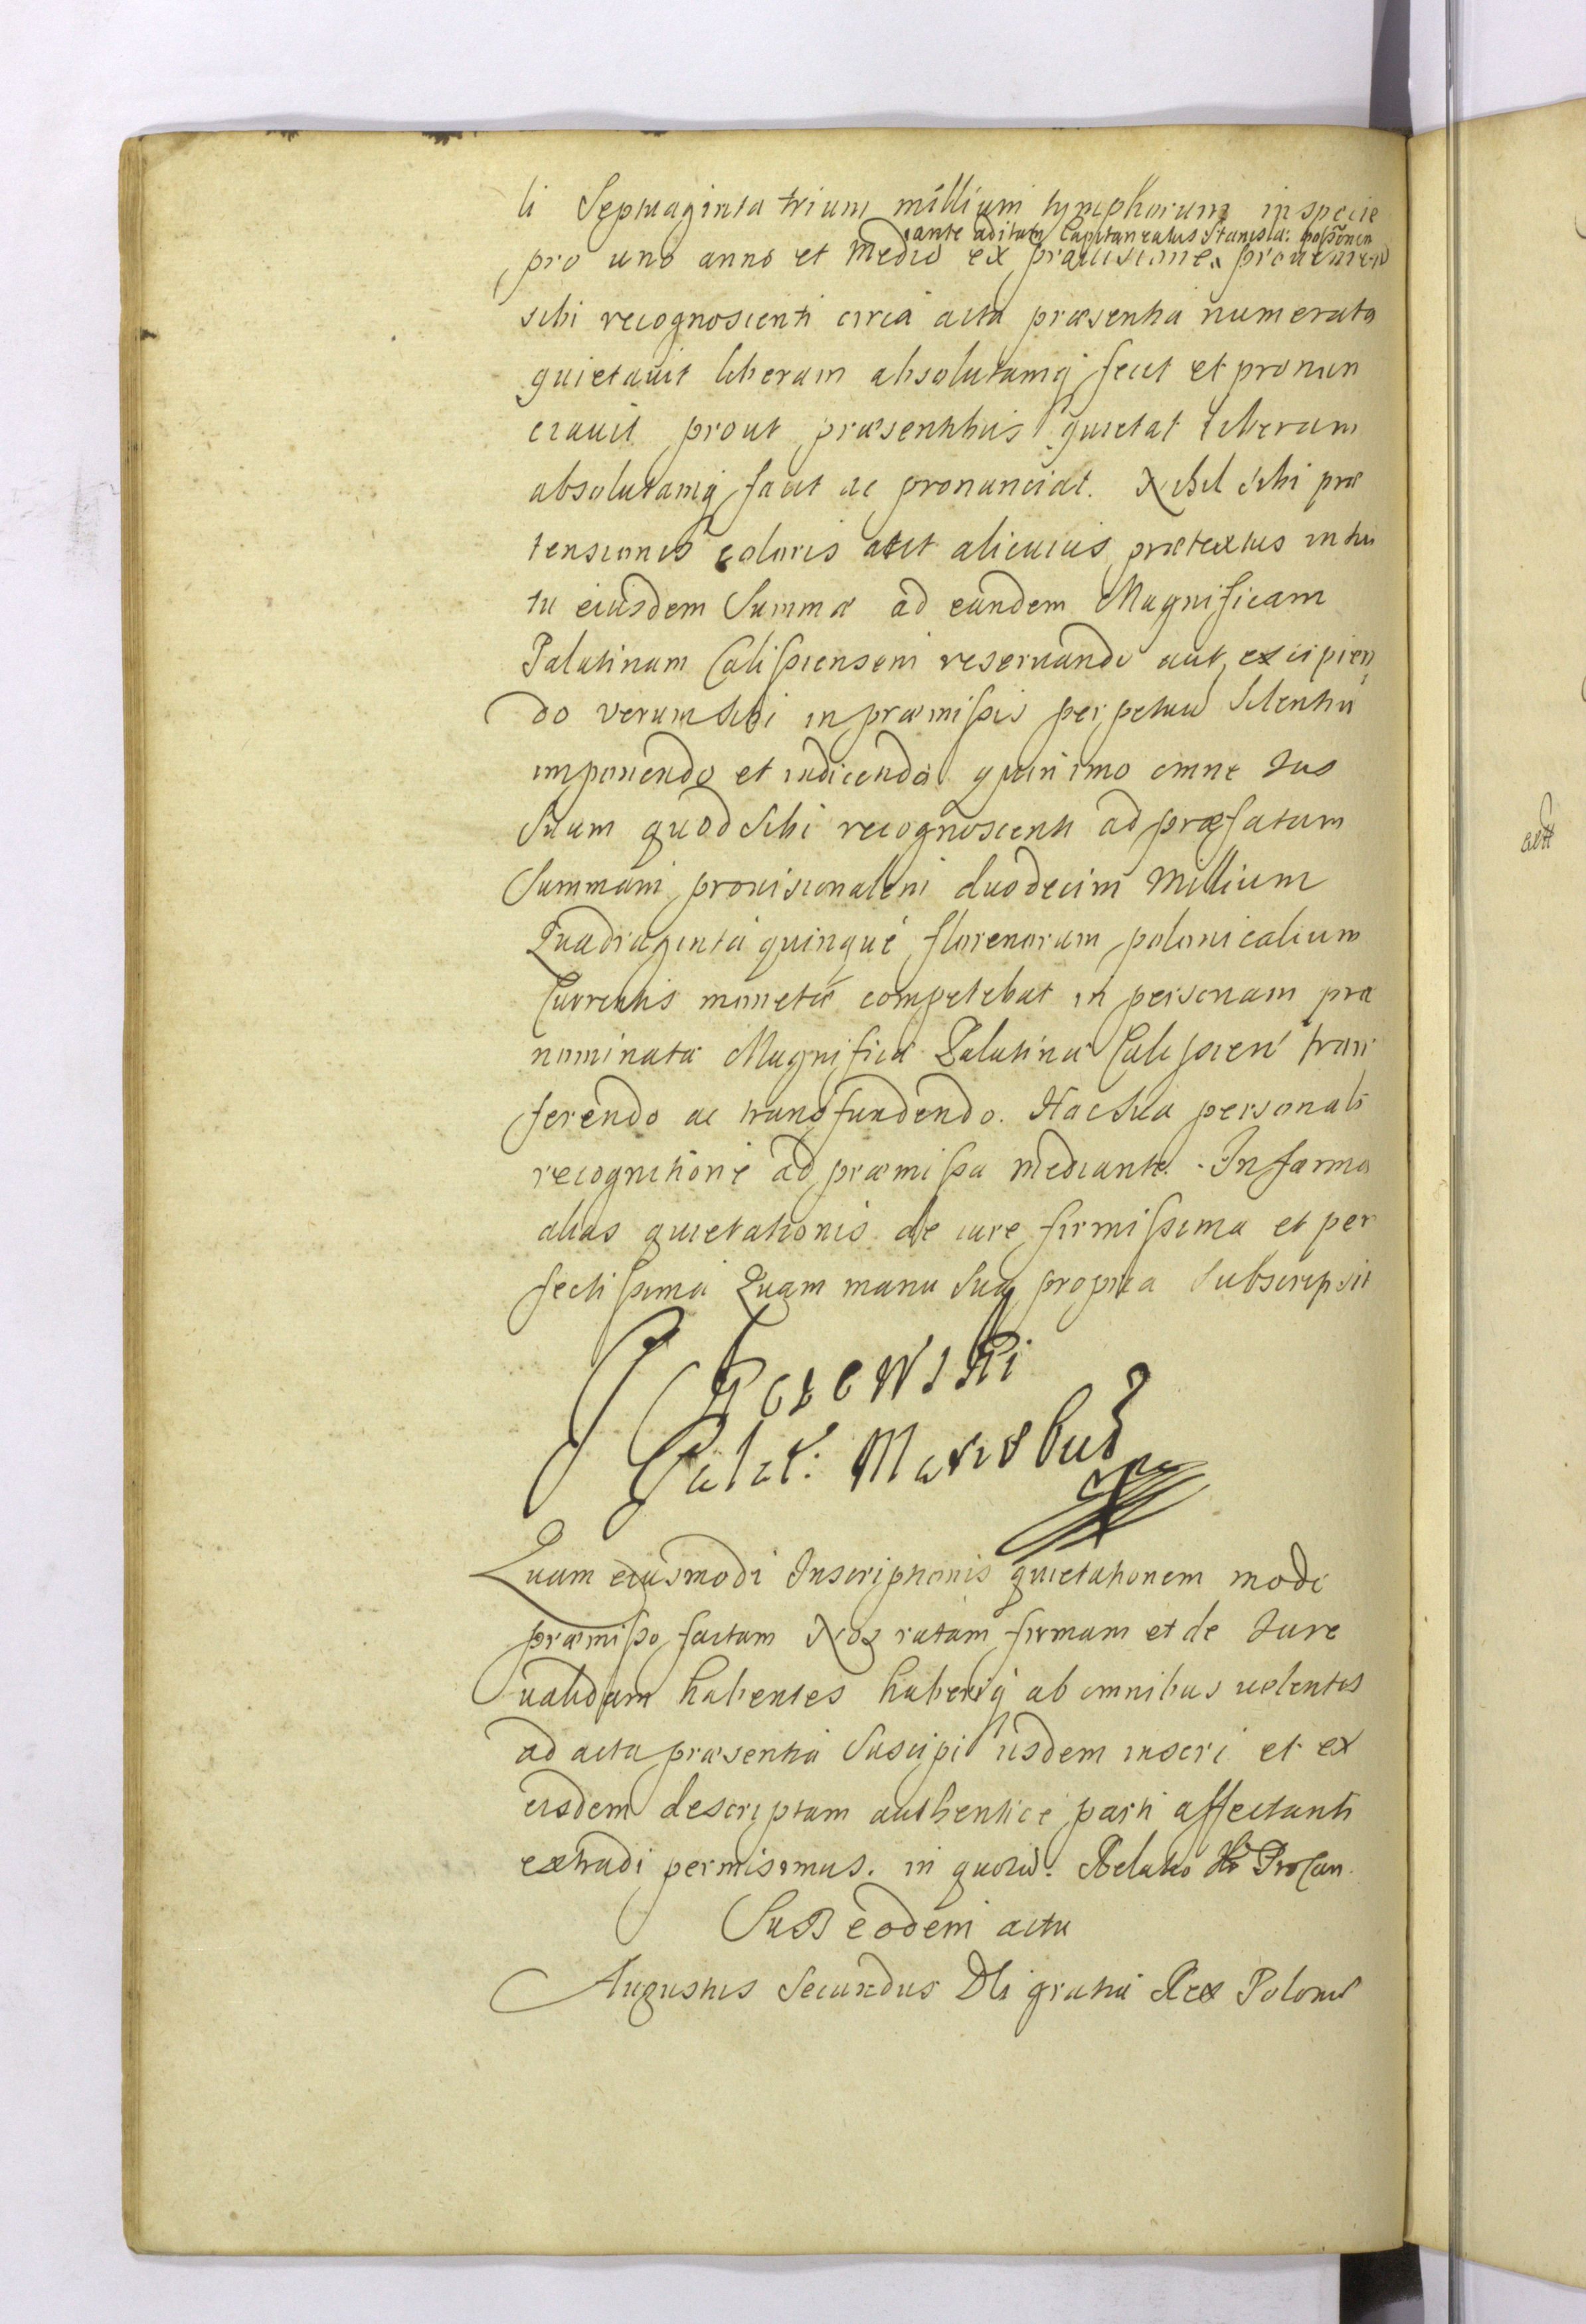 li Septuaginta trium millium tymphorum in specie
ante aditam Capitaneatus Stanisla: possonem
pro uno anno et medio ex provisione provenien
sibi recognoscenti circa acta præsentia numerata
quietavit liberam absolutamq fecit et pronun
ciavit prout præsentibus quietat liberam
absolutamq facit ac pronunciat. Nihil sibi præ
tensionis coloris aut alicuius prætextus intui
tu eiusdem Summæ ad eandem Magnificam
Palatinam Calissiensem reservando aut excipien
do verum sibi in præmissis perpetuũ silentiũ
imponendo et indicendo quin imo omne Jus
Suum quod Sibi recognoscenti ad præfatam
Summam provisionalem duodecim Millium
Quadraginta quinque florenorum polonicalium
Currentis monetæ competebat in personam præ
nominatæ Magnificæ Palatinæ Calissien trans
ferendo ac transfundendo. Hac Sua personali
recognitione ad præmissa mediante. In forma
alias quietationis de iure firmissima et per
fectissima Quam manu Sua propria Subscripsit
Palat:
Quam eiusmodi Inscriptionis quietationem modo
præmisso factam Nos ratam firmam et de Jure
validam habentes haberiq ab omnibus volentes
ad acta præsentia Suscipi iisdem inseri et ex
eisdem descriptam authentice parti affectanti
extradi permisimus. in quorũ. Relatio Procan.
Sub eodem actu
Augustus Secundus Dei gratia Rex Poloniæ
actt